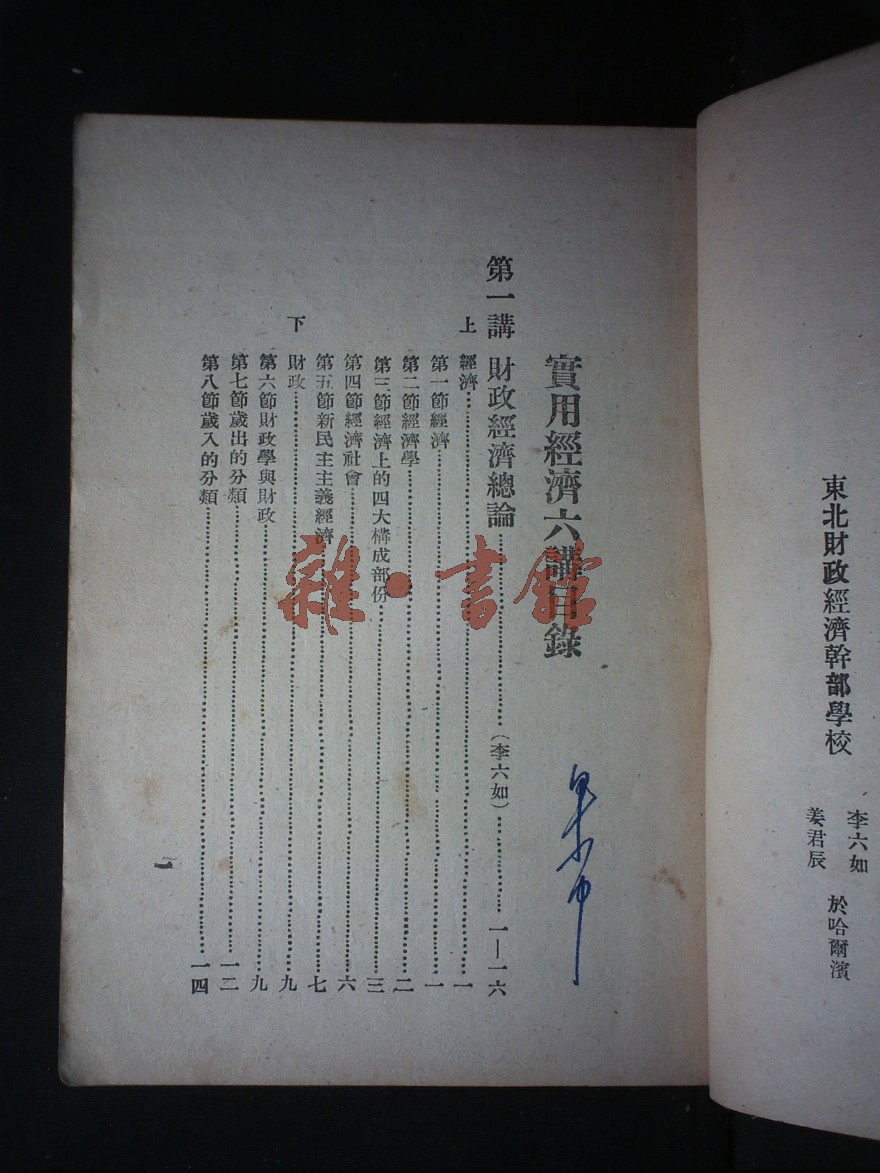 東北財政經濟幹部學校
李六如
姜君辰
於哈爾濱
實用經濟六講目錄
第一講 財政經濟總論……(李六如)……一—一六
上 經濟……一
第一節經濟……一
第二節經濟學……二
第三節經濟上的四大構成部份……三
第四節經濟社會……六
第五節新民主主義經濟……七
下 財政……九
第六節財政學與財政……九
第七節歲出的分類……一二
第八節歲入的分類……一四
一
雜·書館